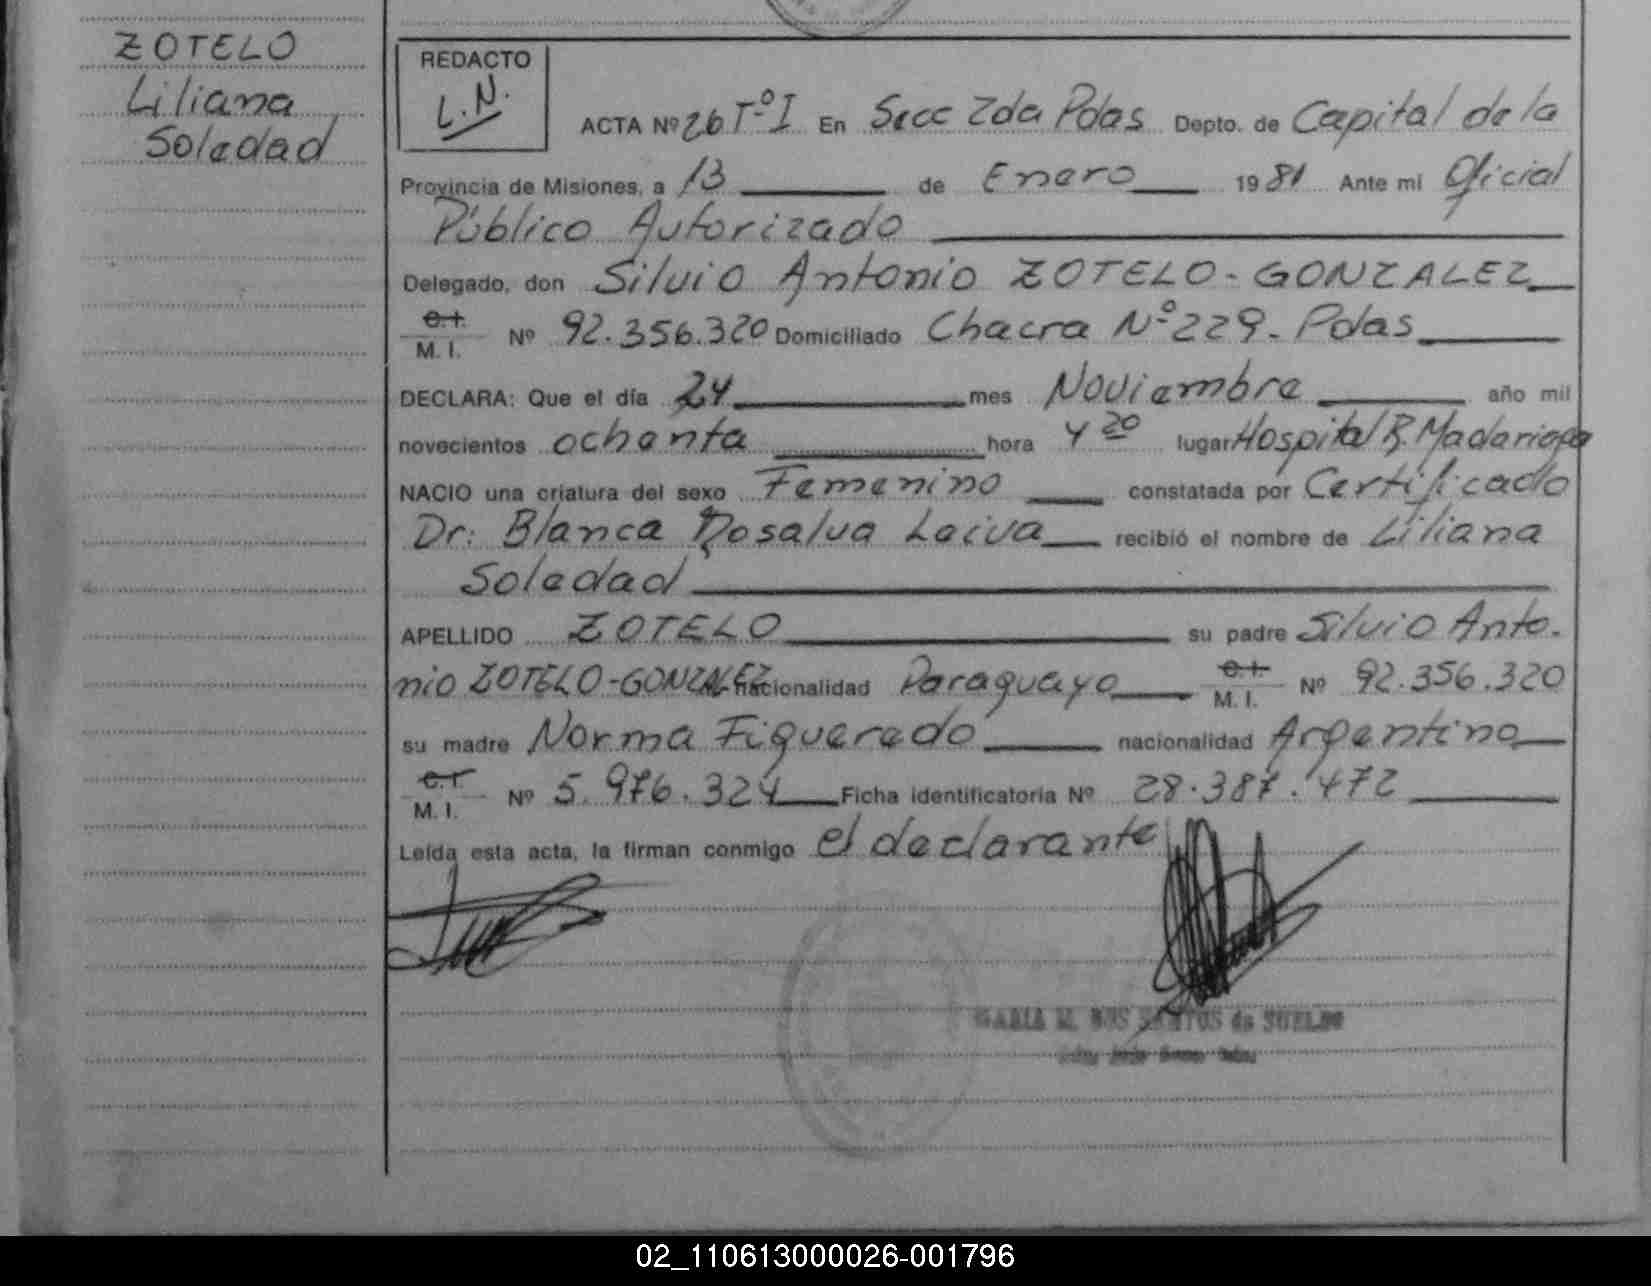 ZOTELO
Liliana
Soledad
REDACTO
L.N.
ACTA Nº 26 Tº I En Secc 2da Pdas Depto. de Capital de la
Provincia de Misiones, a 13 de Enero 1981 Ante mi Oficial
Público Autorizado
Delegado, don Silvio Antonio ZOTELO-GONZALEZ
C.I. M. I. Nº 92.356.320 Domiciliado Chacra Nº 229-Pdas
DECLARA: Que el día 24 mes Noviembre año mil
novecientos ochenta hora 4 20 lugar Hospital R. Madariaga
NACIO una criatura del sexo Femenino constatada por Certificado
Dr: Blanca Rosalva Leiva recibió el nombre de Liliana
Soledad
APELLIDO ZOTELO su padre Silvio Anto-
nio ZOTELO-GONZALEZ nacionalidad Paraguayo C.I. M. I. Nº 92.356.320
su madre Norma Figueredo nacionalidad Argentino
C.I. M. I. Nº 5.976.324 Ficha identificatoria Nº 28.387.472
Leída esta acta, la firman conmigo el declarante
MARIA M. DOS SANTOS de SUELDO
02_110613000026-001796